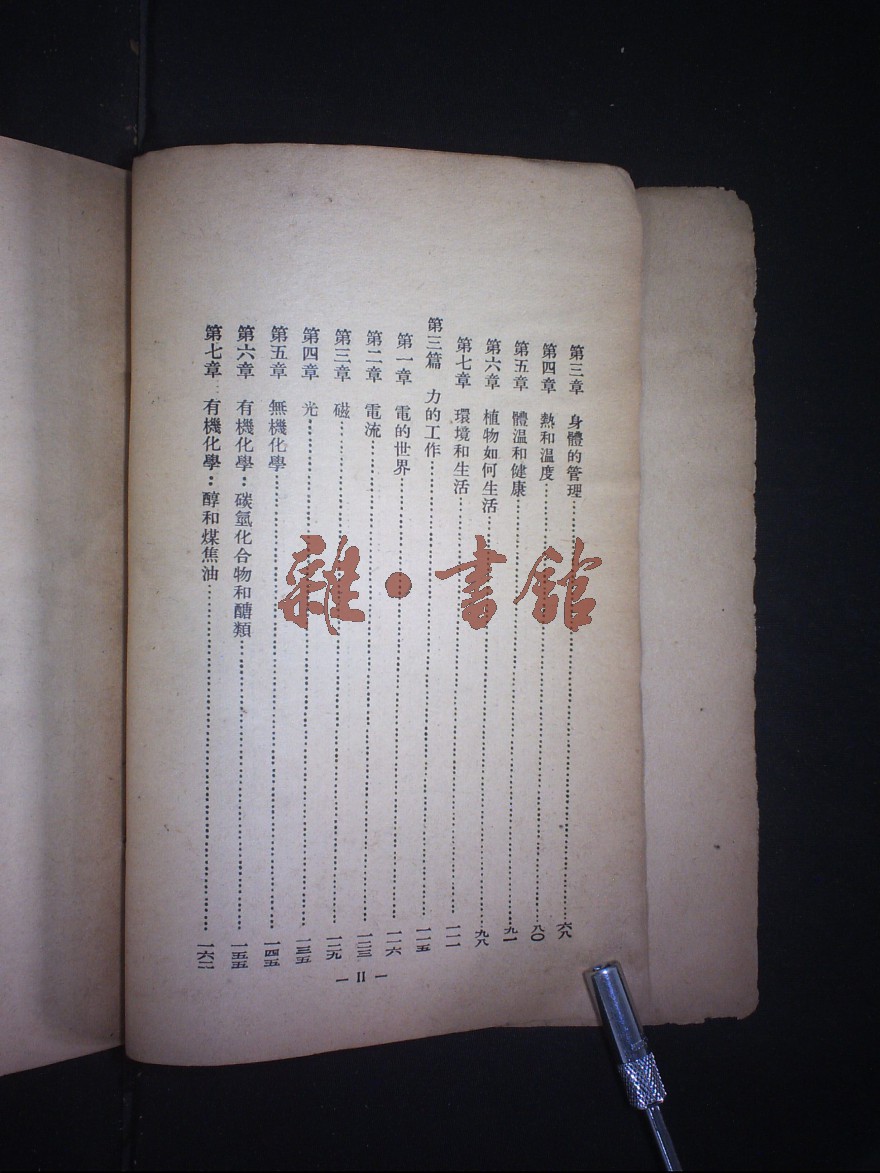 第三章 身體的管理……六八
第四章 熱和溫度……八〇
第五章 體溫和健康……九一
第六章 植物如何生活……九八
第七章 環境和生活……一一一
第三篇 力的工作……一一五
第一章 電的世界……一一六
第二章 電流……一二三
第三章 磁……一二九
第四章 光……一三五
第五章 無機化學……一四五
第六章 有機化學：碳氫化合物和醣類……一五五
第七章 有機化學：醇和煤焦油……一六二
— II —
雜·書館